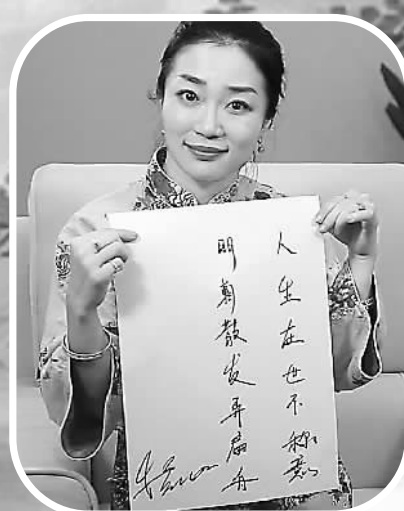 人生在世不称意
明朝散发弄扁舟